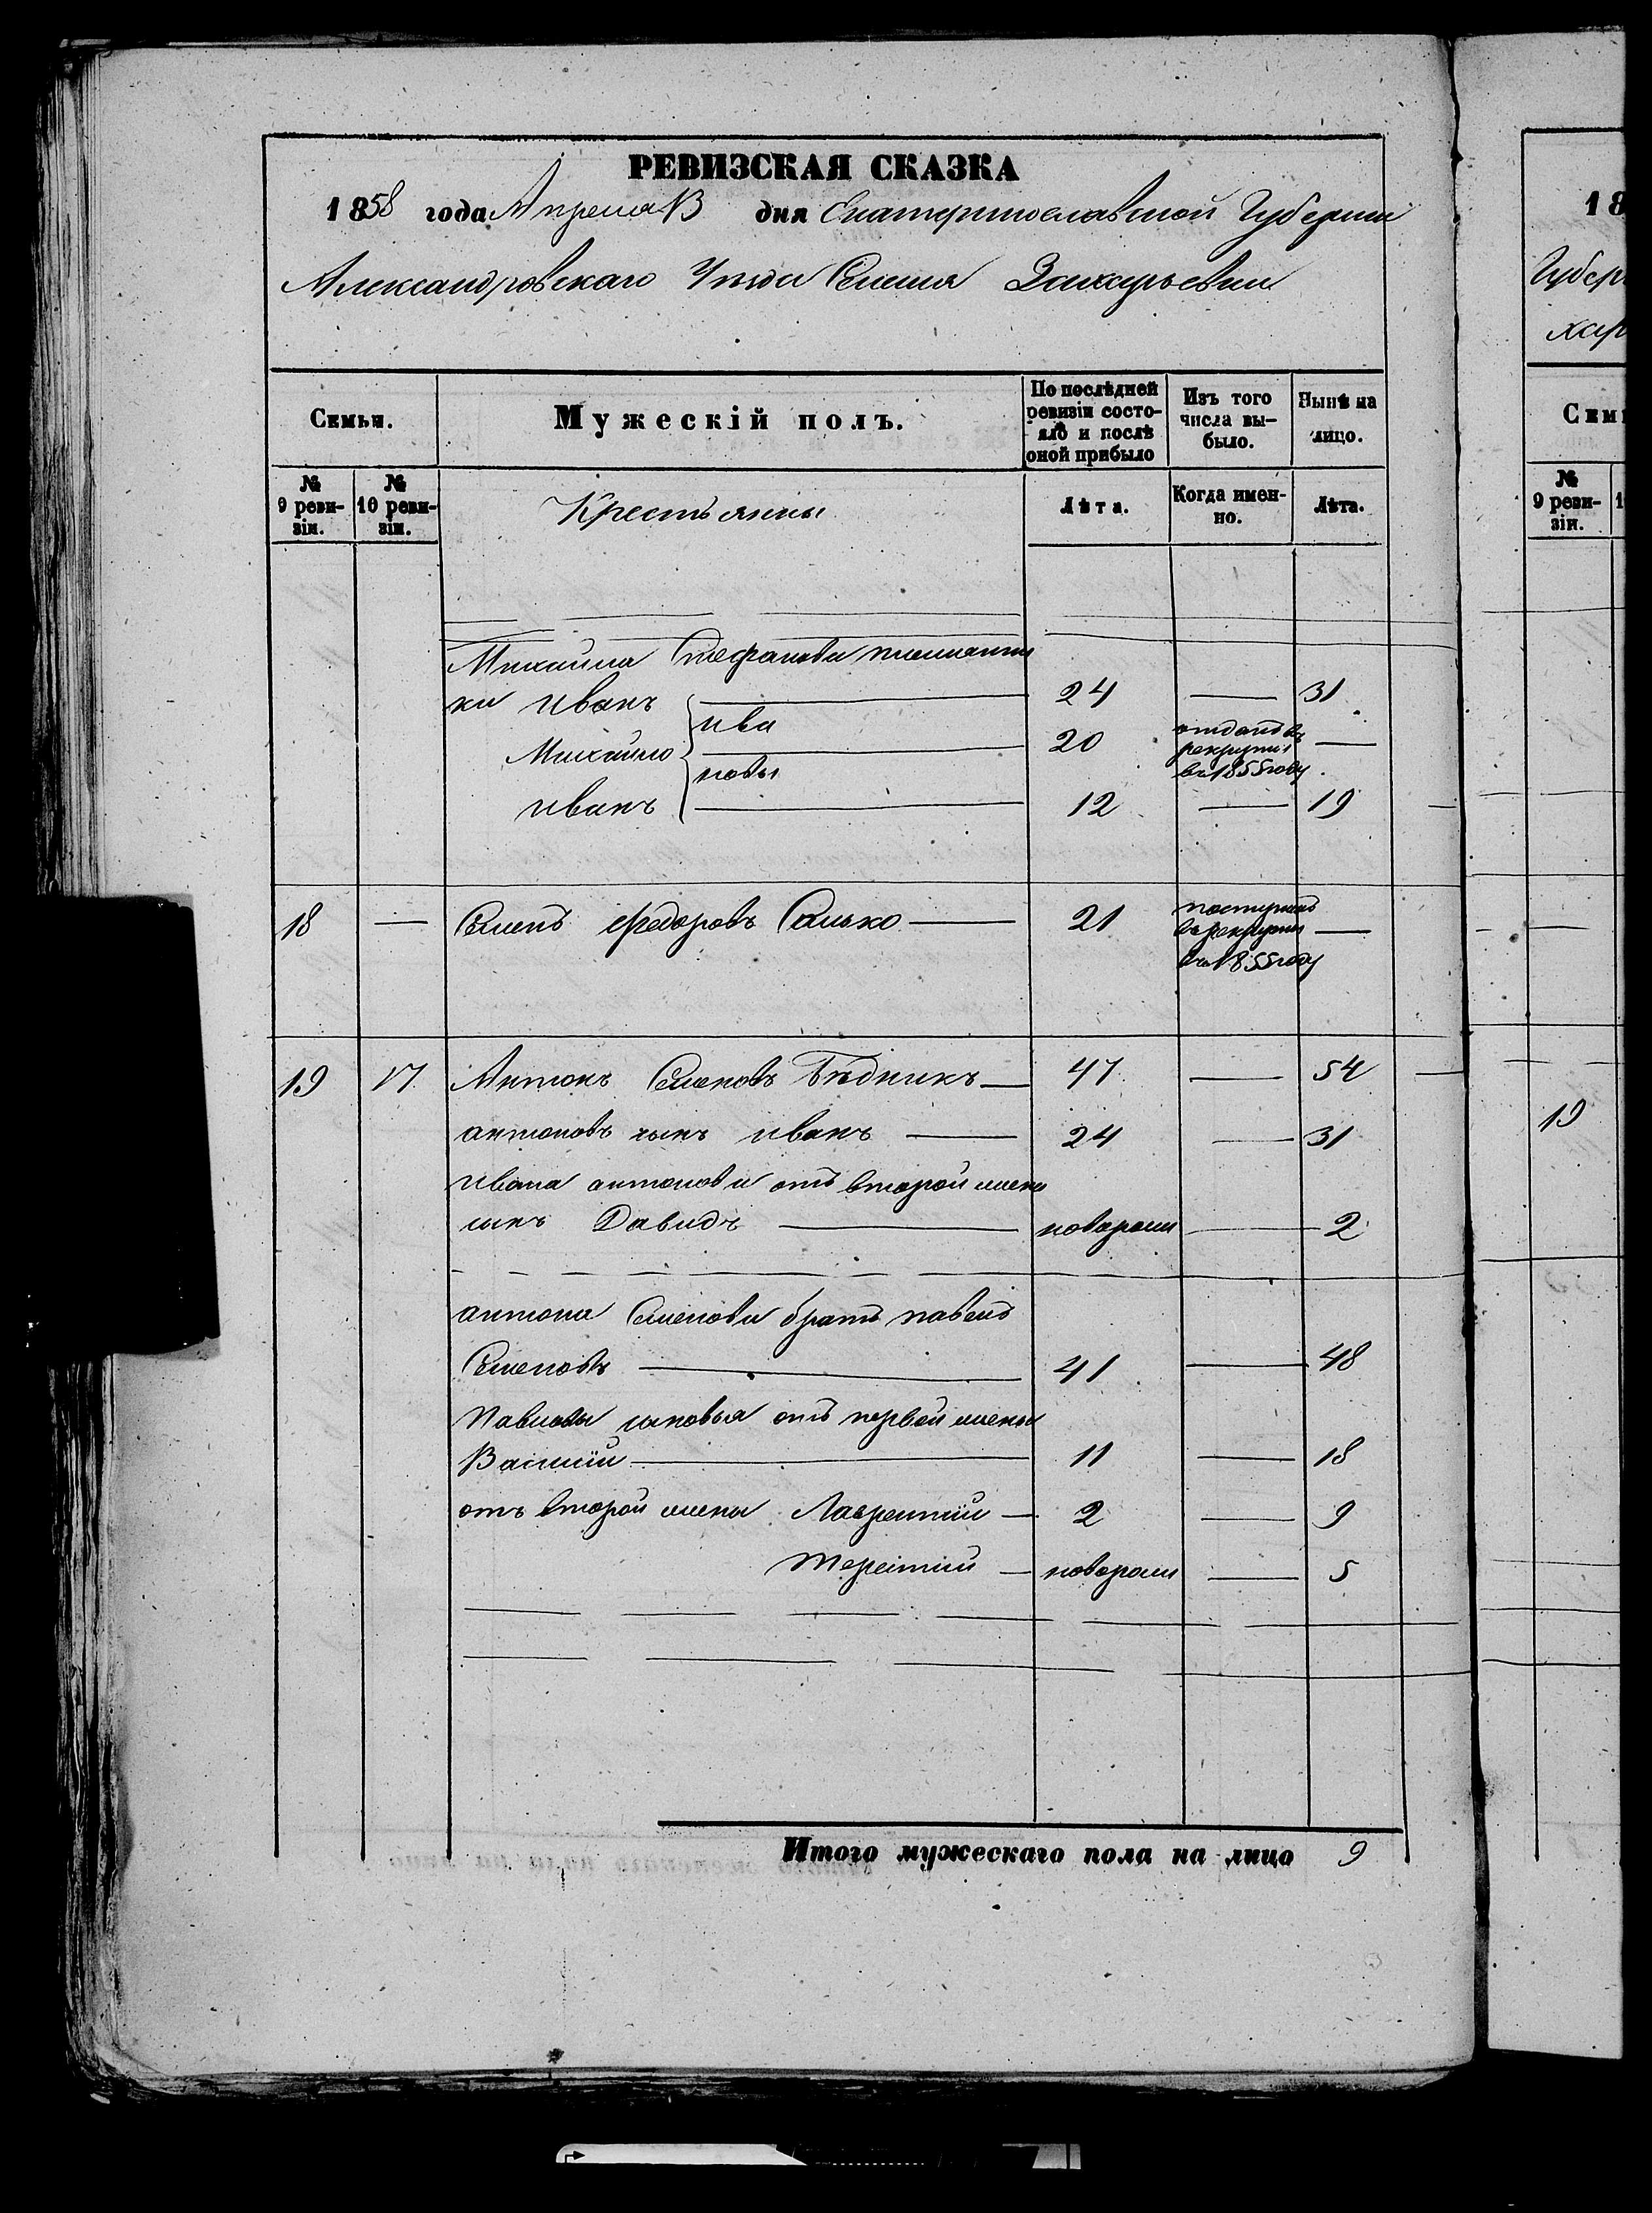 РЕВИЗСКАЯ СКАЗКА
1858 года Апреля дня Екатеринославской Губернии
Александровскаго Уезда Селения Захарьевки
Семьи.
Мужескій полъ.
По послѣдней ревизіи состояло и послѣ оной прибыло
Изъ того числа выбыло.
Нынѣ на лицо.
№ 9 ревизіи.
№ 10 ревизіи.
Крестьяны
Лѣта.
Когда именно.
Лѣта.
Михайла Стефанова племянни
ки Иванъ 24 — 31
ива
Михайло 20 отданъ въ рекруты въ 1855 году —
новы
Иванъ 12 — 19
18 — Семенъ Федоровъ Салько — 21 поступилъ въ рекруты въ 1855 году —
19 17 Антонъ Семеновъ Бѣдникъ — 47 — 54
антоновъ сынъ иванъ — 24 — 31
Ивана антонова отъ второй жены
сынъ Давидъ — новорожд — 2
антона Семенова братъ павелъ
Семеновъ — 41 — 48
Павловы сыновья отъ первой жены
Василій — 11 — 18
отъ второй жены Лаврентій — 2 — 9
Терентій — новорожд — 5
Итого мужескаго пола на лицо 9
18
Губер
хар
Сем
№
9 ревизіи.
19